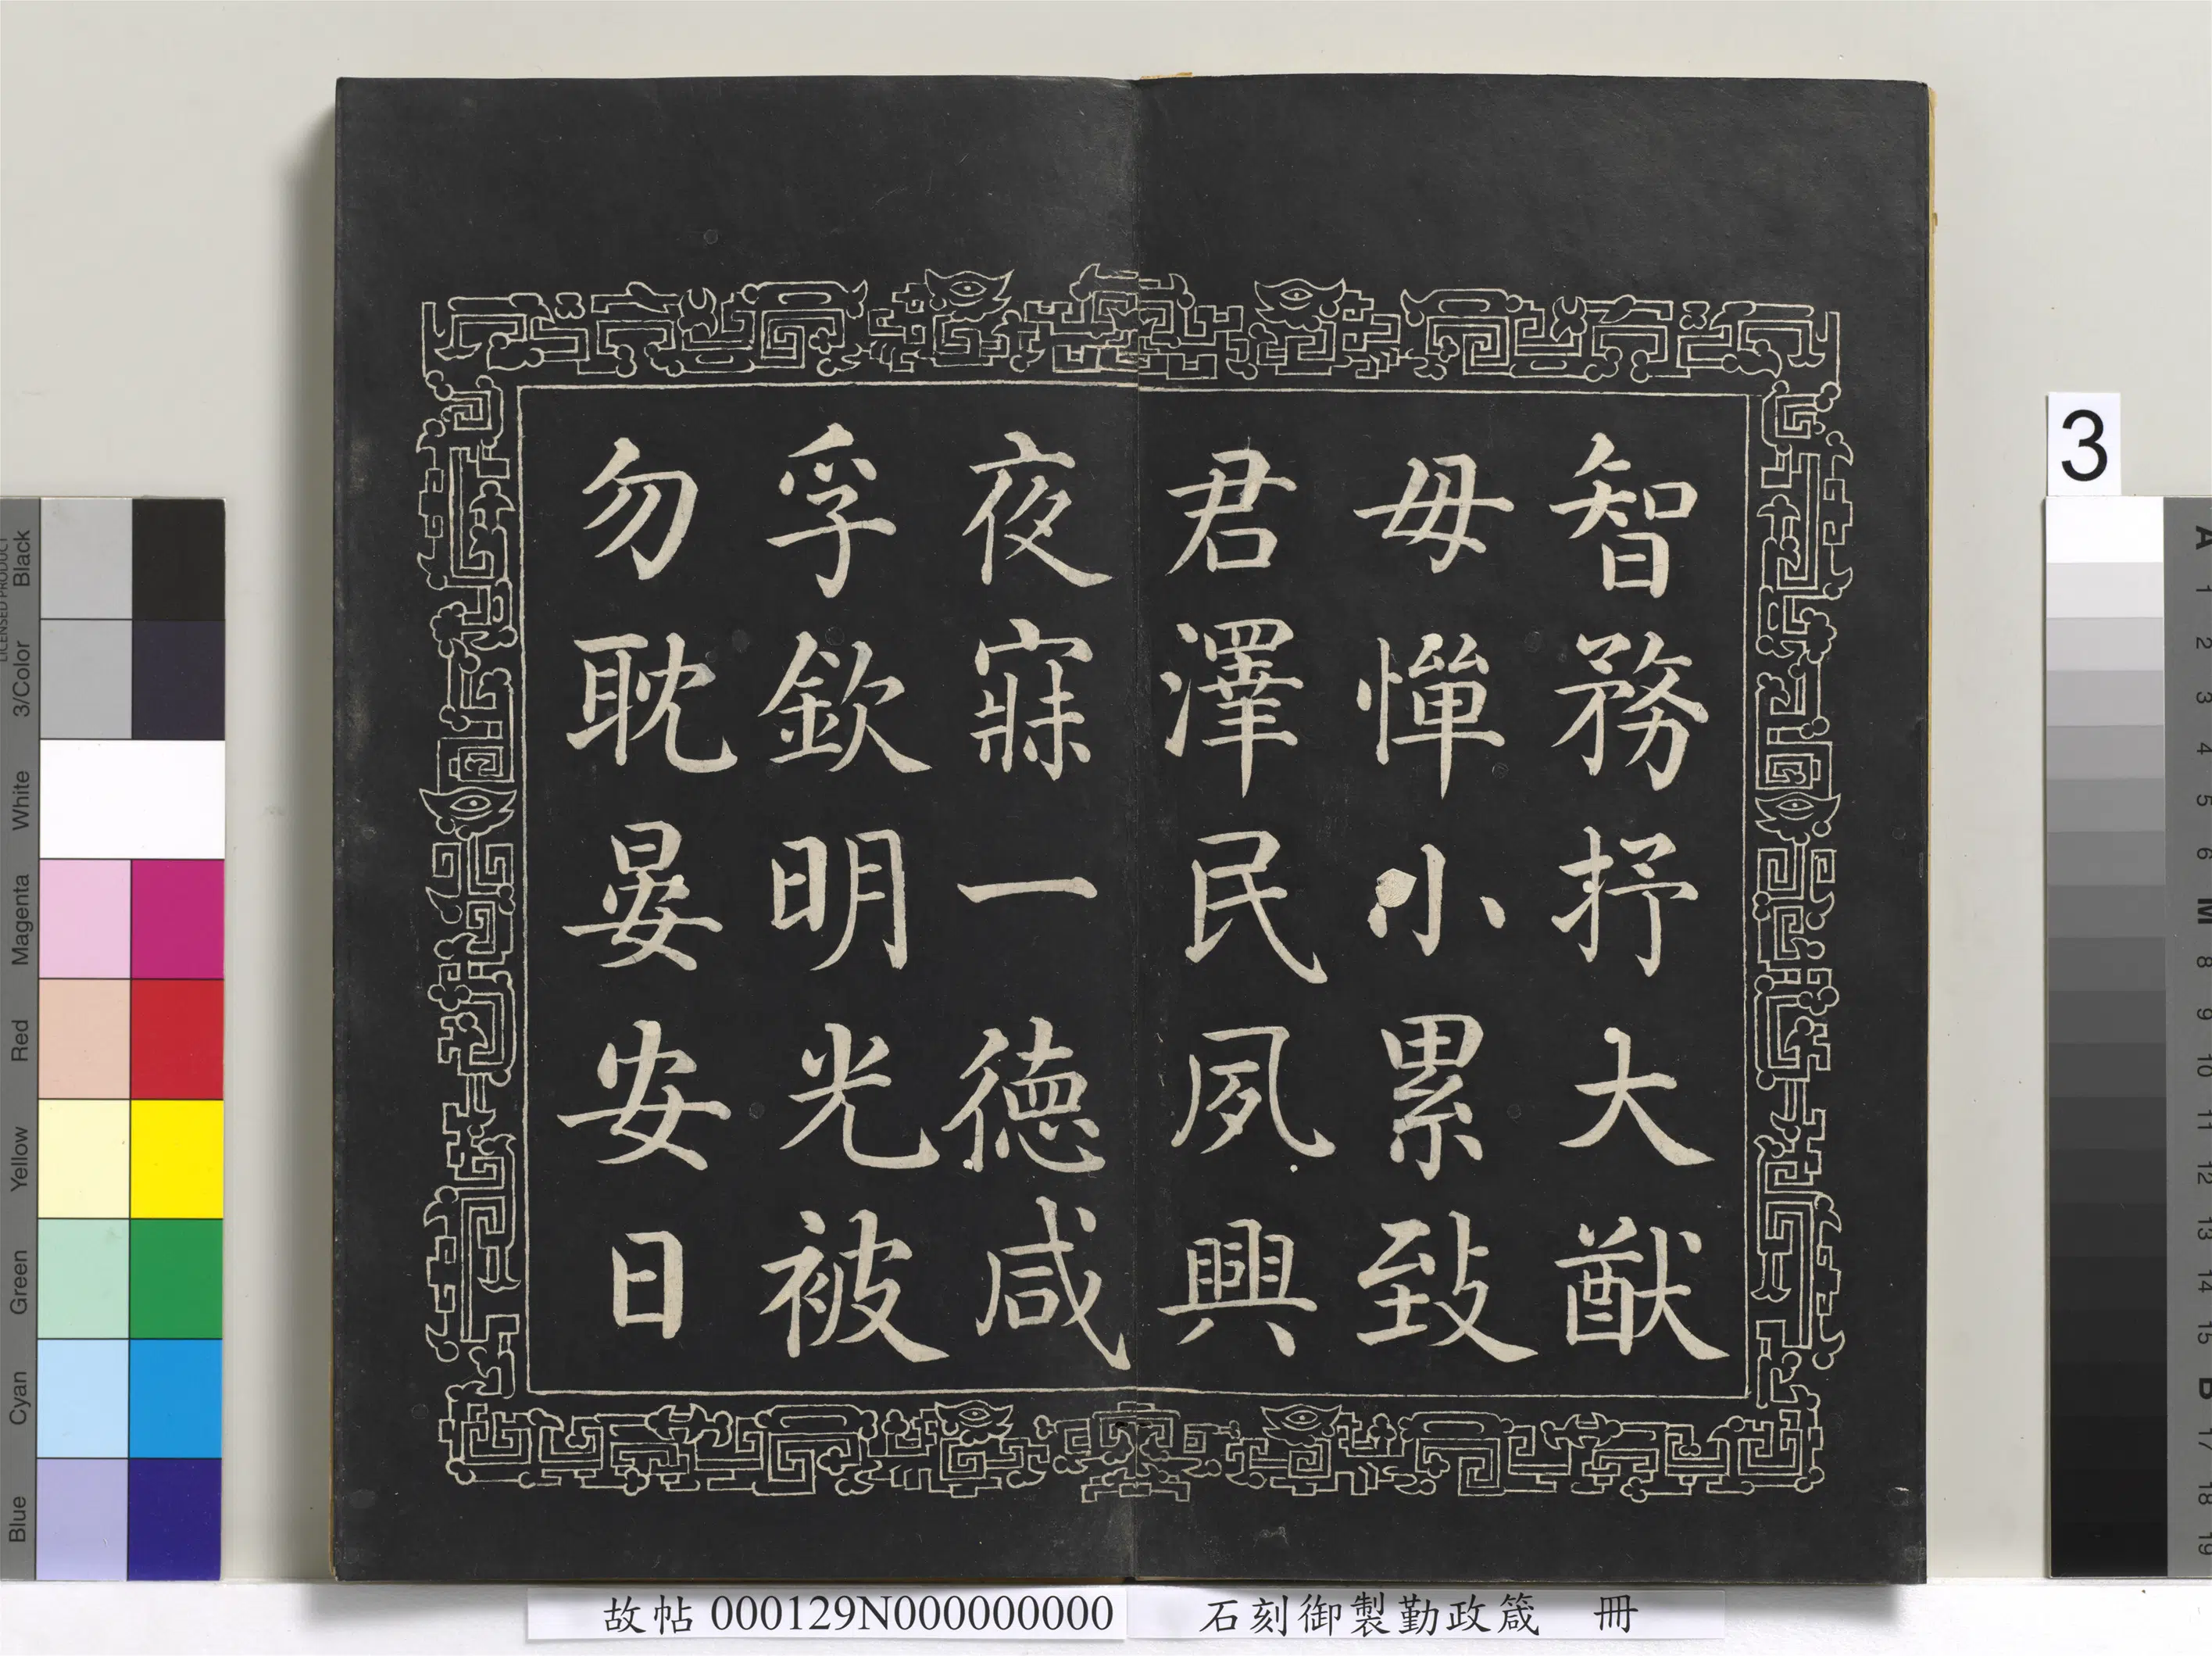 智務抒大猷
毋憚小累致
君澤民夙興
夜寐一德咸
孚欽明光被
勿耽晏安日
故帖 000129N000000000
石刻御製勤政箴 冊
3
LICENSED PRODUCT
Black
3/Color
White
Magenta
Red
Yellow
Green
Cyan
Blue
A
1
2
3
4
5
6
M
8
9
10
11
12
13
14
15
B
17
18
19